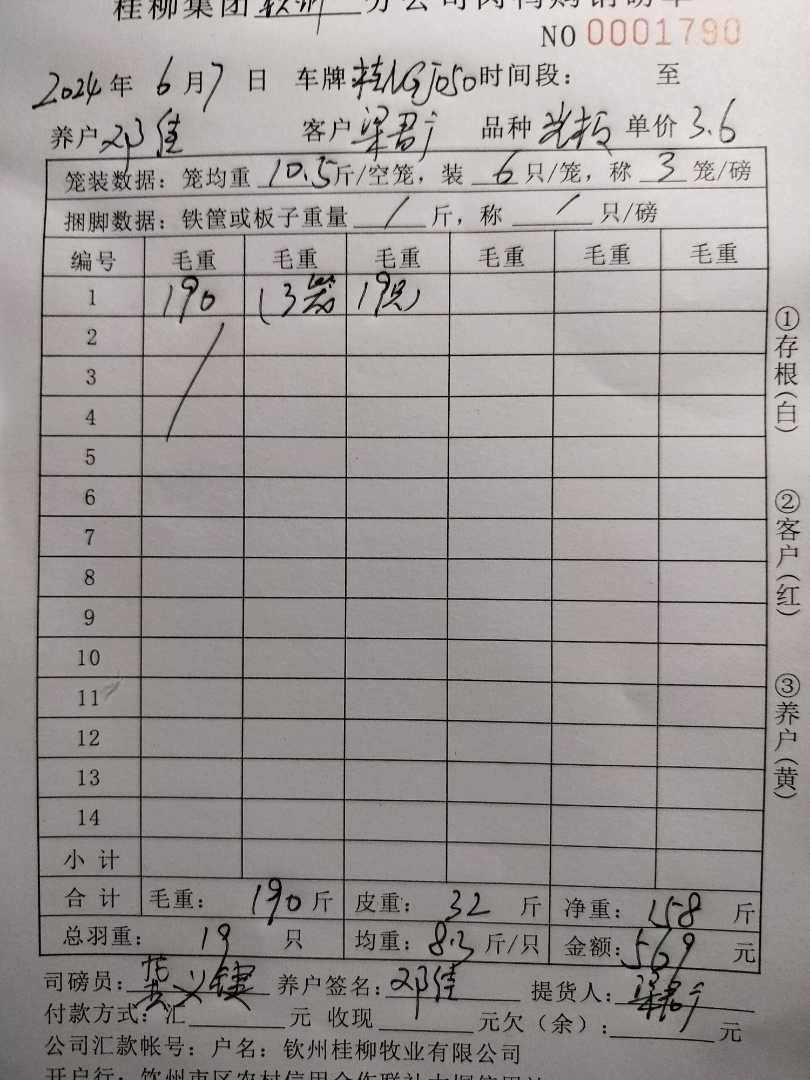 桂柳集团钦州分公司肉鸭购销磅单
NO 0001790
2024年 6月7日 车牌 时间段： 至
养户 邓佳 客户 梁君广 品种 光板 单价 3.6
笼装数据：笼均重 10.5 斤/空笼，装 6 只/笼，称 3 笼/磅
捆脚数据：铁筐或板子重量 / 斤，称 / 只/磅
编号 毛重 毛重 毛重 毛重 毛重 毛重
1 190 (3笼 19只)
2
3
4
5
6
7
8
9
10
11
12
13
14
小 计
合 计 毛重： 190 斤 皮重： 32 斤 净重： 158 斤
总羽重： 19 只 均重： 8.3 斤/只 金额： 569 元
司磅员： 养户签名： 邓佳 提货人： 梁君广
付款方式：汇 元 收现 元欠（余）： 元
公司汇款帐号：户名：钦州桂柳牧业有限公司
①存根(白)
②客户(红)
③养户(黄)